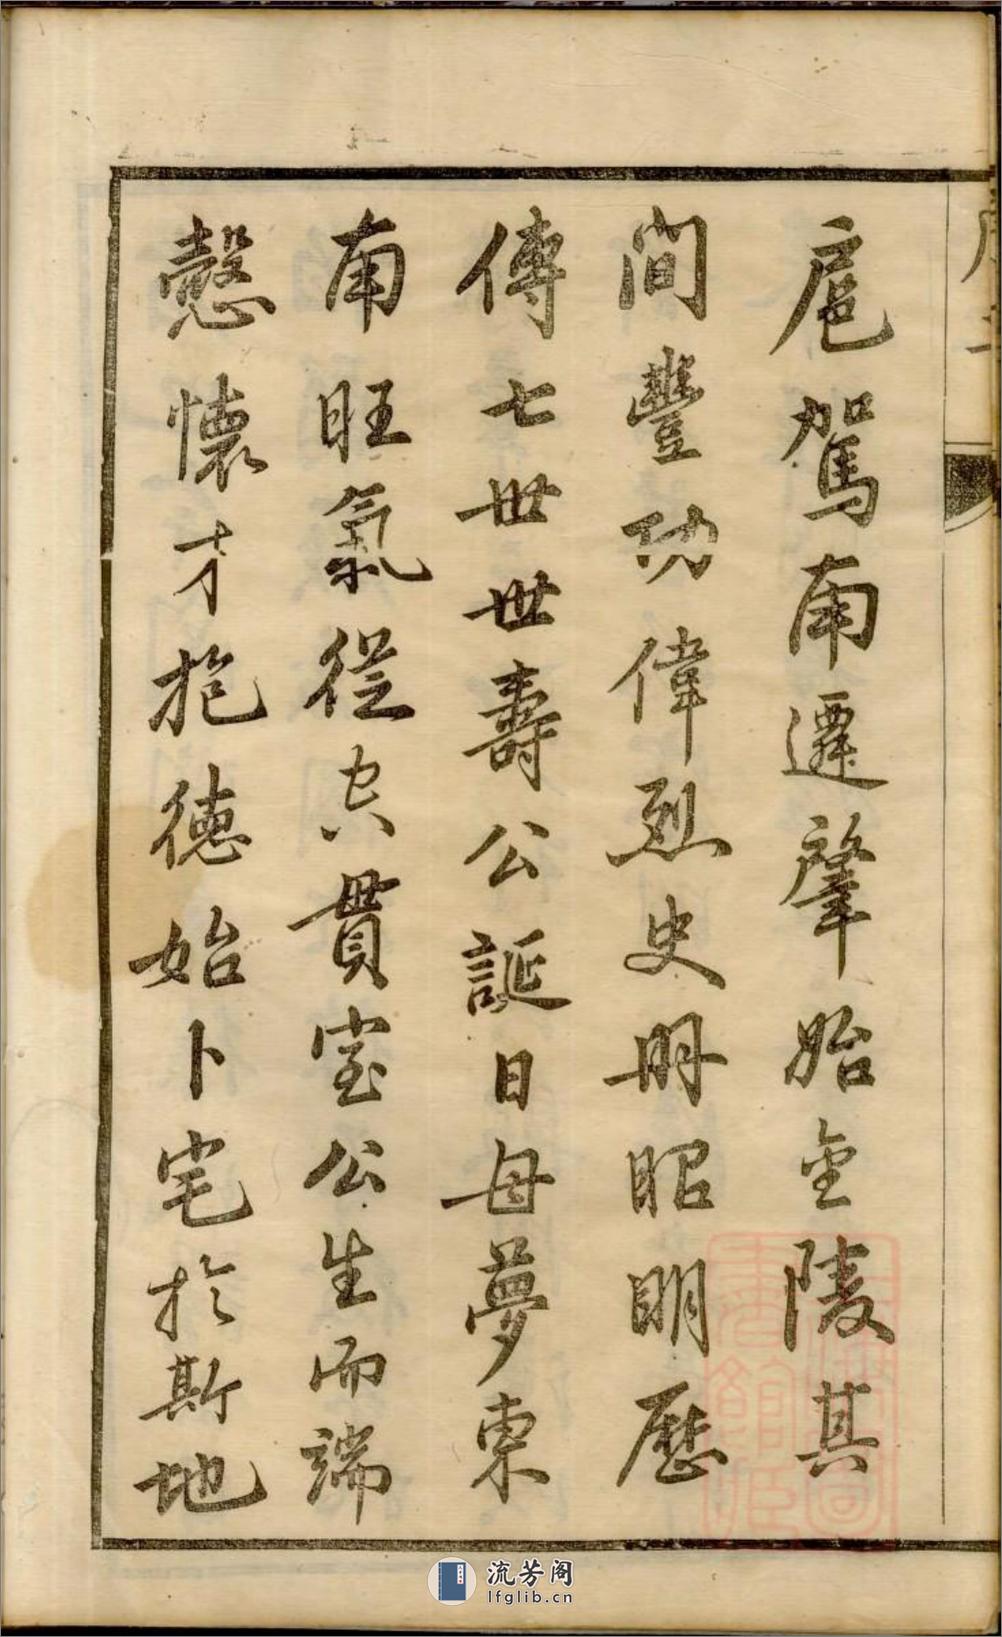 扈駕南遷肇始金陵其
間豐功偉烈史冊昭明歷
傳七世世壽公誕日母夢東
南旺氣從空貫室公生而端
慤懷才抱德始卜宅於斯地
流芳阁
lfglib.cn